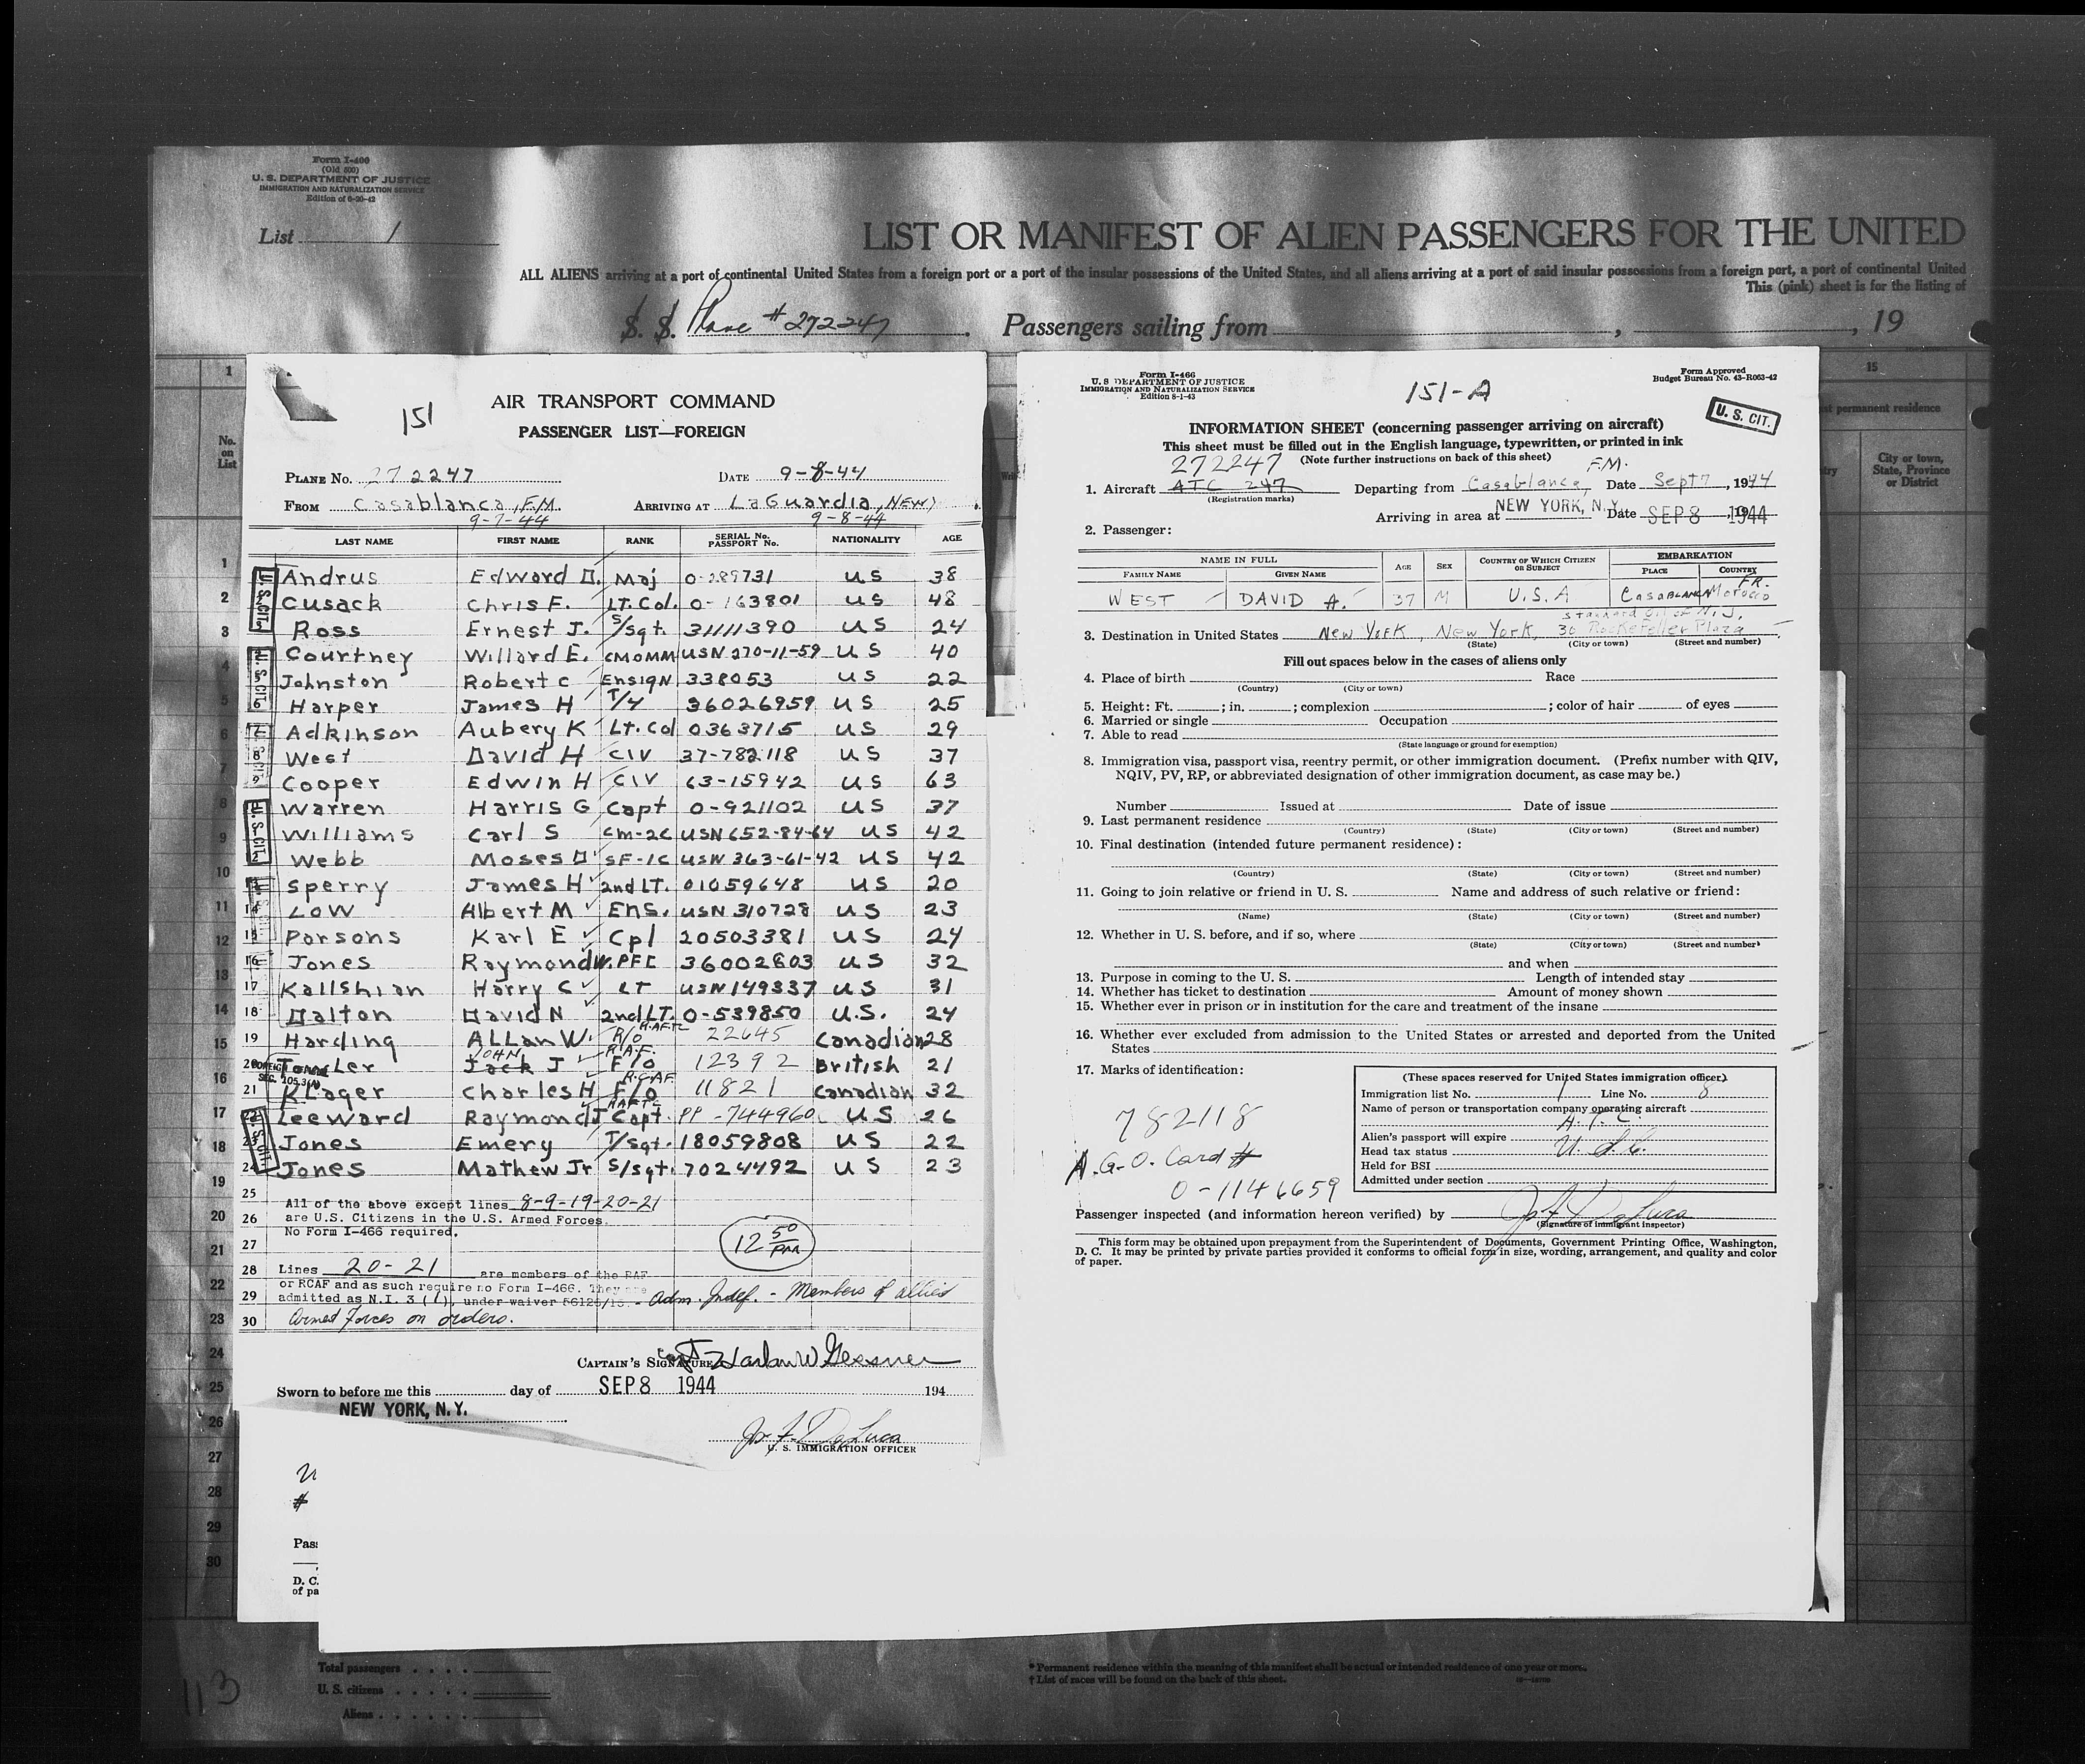 Form I-466
(Old 500)
U. S. DEPARTMENT OF JUSTICE
IMMIGRATION AND NATURALIZATION SERVICE
Edition of 6-20-42
List 1
LIST OR MANIFEST OF ALIEN PASSENGERS FOR THE UNITED
ALL ALIENS arriving at a port of continental United States from a foreign port or a port of the insular possessions of the United States, and all aliens arriving at a port of said insular possessions from a foreign port, a port of continental United
This (pink) sheet is for the listing of
S. S. Plane # 272247. Passengers sailing from , , 19
1
No. on List
151
AIR TRANSPORT COMMAND
PASSENGER LIST—FOREIGN
PLANE No. 272247 DATE 9-8-44
FROM Casablanca, F.M. ARRIVING AT LaGuardia, NEW
9-7-44 9-8-44
LAST NAME FIRST NAME RANK SERIAL No. PASSPORT No. NATIONALITY AGE
Andrus Edward D. Maj 0-289731 US 38
Cusack Chris F. LT. Col. 0-163801 US 48
Ross Ernest J. S/sgt. 31111390 US 24
Courtney Willard E. CMOMM USN 270-11-59 US 40
Johnston Robert C ENSIGN 338053 US 22
Harper James H T/4 36026959 US 25
Adkinson Aubery K Lt. Col 0363715 US 29
West David H CIV 37-782118 US 37
Cooper Edwin H CIV 63-15942 US 63
Warren Harris G Capt 0-921102 US 37
Williams Carl S CM-2C USN 652-84-64 US 42
Webb Moses D SF-1C USN 363-61-42 US 42
Sperry James H 2nd LT. 01059648 US 20
Low Albert M Ens. USN 310728 US 23
Parsons Karl E Cpl 20503381 US 24
Jones Raymond W. PFC 36002803 US 32
Kallshian Harry C LT USN 149337 US 31
Dalton David N 2nd LT. 0-539850 U.S. 24
19 Harding ALLan W. R/O R.A.F.T.C. 22645 Canadian 28
20 JOHN Jack J F/O R.A.F. 12392 British 21
21 KLager Charles H F/O R.C.A.F. 11821 Canadian 32
Leeward Raymond J Capt. PP-744960 US 26
Jones Emery T/Sgt. 18059808 US 22
24 Jones Mathew Jr S/sgt. 7024492 US 23
25
All of the above except lines 8-9-19-20-21
26 are U.S. Citizens in the U.S. Armed Forces.
No Form I-466 required.
27
12 50 PM
28 Lines 20-21 are members of the RAF
or RCAF and as such require no Form I-466. They are
29 admitted as N.I. 3 (1), under waiver 56125/ - Adm. Indef. - Members of allied
30 armed forces on orders.
CAPTAIN'S SIGNATURE Capt Harlan W Gessner
Sworn to before me this day of SEP 8 1944 194
NEW YORK, N. Y.
Jos F. DeLuca
U. S. IMMIGRATION OFFICER
Form I-466
U. S DEPARTMENT OF JUSTICE
IMMIGRATION AND NATURALIZATION SERVICE
Edition 8-1-43
151-A
Form Approved
Budget Bureau No. 43-R063-42
U. S. CIT.
INFORMATION SHEET (concerning passenger arriving on aircraft)
This sheet must be filled out in the English language, typewritten, or printed in ink
(Note further instructions on back of this sheet)
272247 F.M.
1. Aircraft ATC 247 Departing from Casablanca, Date Sept 7, 1944
(Registration marks)
Arriving in area at NEW YORK, N.Y. Date SEP 8 1944
2. Passenger:
NAME IN FULL AGE SEX COUNTRY OF WHICH CITIZEN OR SUBJECT EMBARKATION
FAMILY NAME GIVEN NAME PLACE COUNTRY
WEST DAVID A. 37 M U.S.A CasaBLANCA FR. Morocco
Standard Oil of N.J.
3. Destination in United States New York, New York, 30 Rockefeller Plaza
(State) (City or town) (Street and number)
Fill out spaces below in the cases of aliens only
4. Place of birth Race
(Country) (City or town)
5. Height: Ft. ; in. ; complexion ; color of hair of eyes
6. Married or single Occupation
7. Able to read
(State language or ground for exemption)
8. Immigration visa, passport visa, reentry permit, or other immigration document. (Prefix number with QIV,
NQIV, PV, RP, or abbreviated designation of other immigration document, as case may be.)
Number Issued at Date of issue
9. Last permanent residence
(Country) (State) (City or town) (Street and number)
10. Final destination (intended future permanent residence):
(Country) (State) (City or town) (Street and number)
11. Going to join relative or friend in U. S. Name and address of such relative or friend:
(Name) (State) (City or town) (Street and number)
12. Whether in U. S. before, and if so, where
(State) (City or town) (Street and number)
and when
13. Purpose in coming to the U. S. Length of intended stay
14. Whether has ticket to destination Amount of money shown
15. Whether ever in prison or in institution for the care and treatment of the insane
16. Whether ever excluded from admission to the United States or arrested and deported from the United
States
17. Marks of identification:
782118
A.G.O. Card #
0-1146659
(These spaces reserved for United States immigration officer)
Immigration list No. 1 Line No. 8
Name of person or transportation company operating aircraft
A.T.C.
Alien's passport will expire
Head tax status U.S.C.
Held for BSI
Admitted under section
Passenger inspected (and information hereon verified) by Jos F. DeLuca
(Signature of immigrant inspector)
This form may be obtained upon prepayment from the Superintendent of Documents, Government Printing Office, Washington,
D. C. It may be printed by private parties provided it conforms to official form in size, wording, arrangement, and quality and color
of paper.
15
st permanent residence
City or town, State, Province or District
Pas
D. C.
of pa
Total passengers
U. S. citizens
Aliens
113
* Permanent residence within the meaning of this manifest shall be actual or intended residence of one year or more.
† List of races will be found on the back of this sheet.